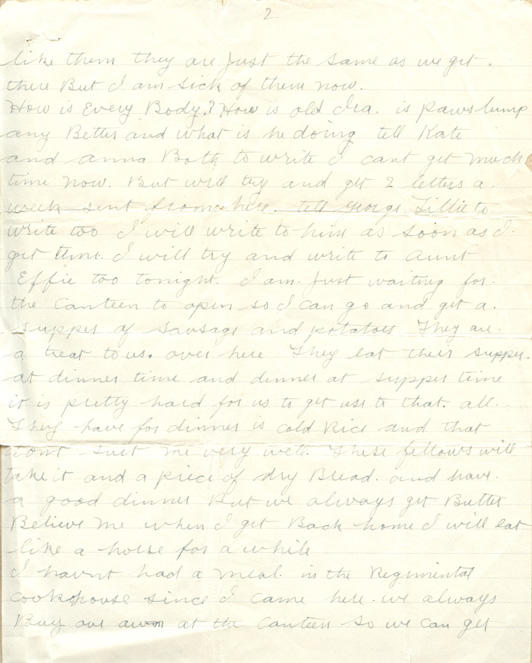 2
like them they are just the same as we get.
there But I am sick of them now.
How is Every Body? How is old Ira. is paws lump
any Better and what is he doing tell Kate
and anna Both to write I cant get much
time now. But will try and get 2 letters a.
week sent from here. tell George Lillie to
write too I will write to him as soon as I.
get time. I will try and write to aunt
Effie too tonight. I am just waiting for.
the Canteen to open so I can go and get a.
supper of sausage and potatoes They are.
a treat to us. over here They eat their supper.
at dinner time and dinner at supper time
it is pretty hard for us to get use to that. all.
They have for dinner is cold Rice and that
dont suit me very well. These fellows will
take it and a piece of dry Bread. and have.
a good dinner But we always get Butter
Believe me when I get Back home I will eat
like a horse for a while
I havnt had a meal. in the Regimental
cookhouse since I came here. we always
Buy our own at the Canteen so we can get